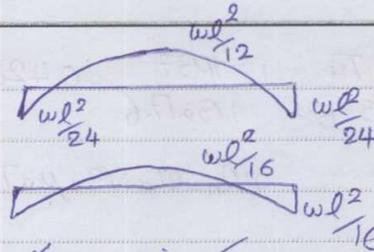 wl²/12
wl²/24 wl²/24
wl²/16
wl²/16